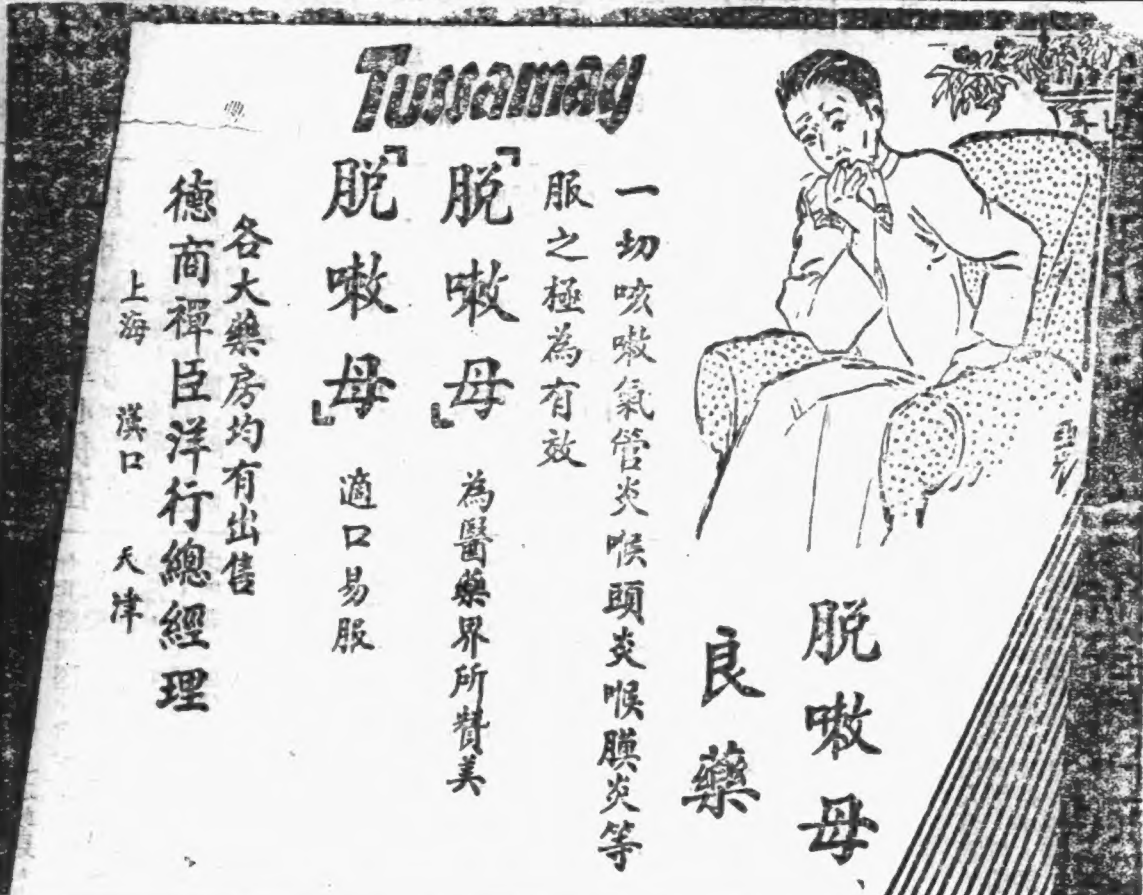 Tussamag
脱嗽母
良藥
一切咳嗽氣管炎喉頭炎喉膜炎等
服之極為有效
「脱嗽母」為醫藥界所贊美
「脱嗽母」適口易服
各大藥房均有出售
德商禪臣洋行總經理
上海 漢口 天津